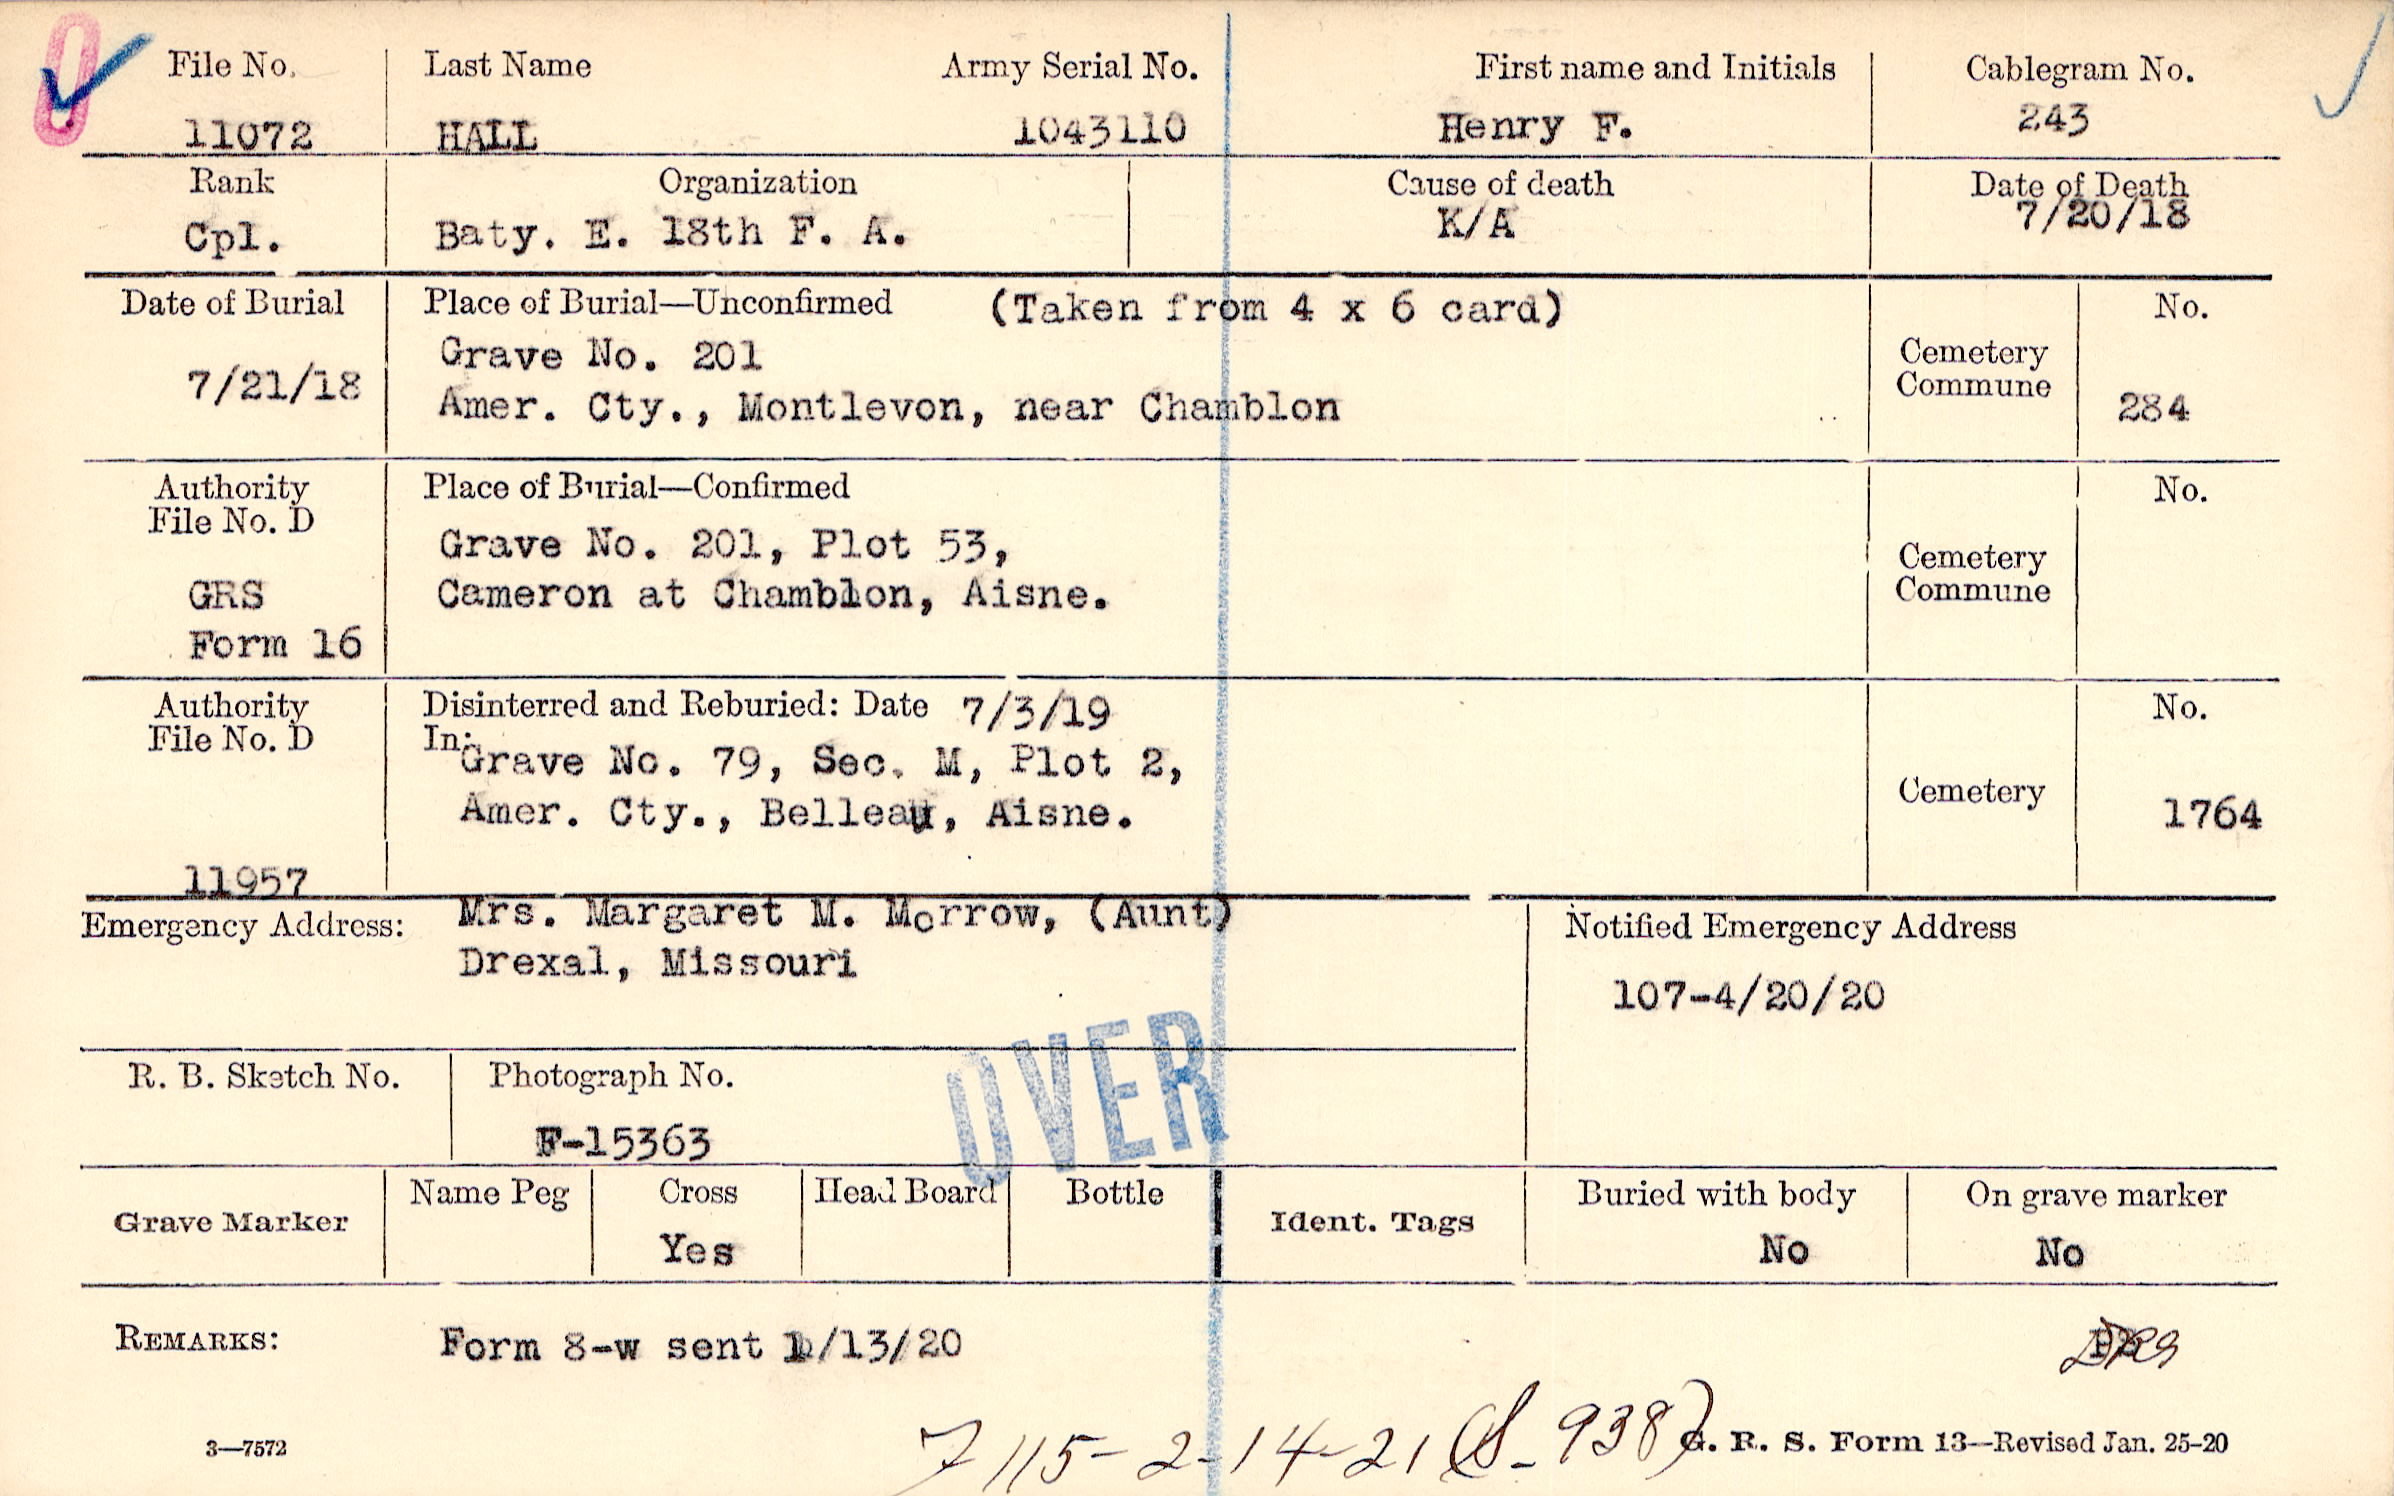 File No. Last Name Army Serial No. First name and Initials Cablegram No.
11072 HALL 1043110 Henry F. 243
Rank Organization Cause of death Date of Death
Cpl. Baty. E. 18th F. A. K/A 7/20/18
Date of Burial Place of Burial—Unconfirmed (Taken from 4 x 6 card) No.
Grave No. 201
Cemetery
Commune
7/21/18 Amer. Cty., Montlevon, near Chamblon 284
Authority Place of Burial—Confirmed No.
File No. D
Grave No. 201, Plot 53,
Cemetery
GRS Cameron at Chamblon, Aisne. Commune
Form 16
Authority Disinterred and Reburied: Date 7/3/19 No.
File No. D In:
Grave No. 79, Sec. M, Plot 2,
Cemetery
Amer. Cty., Belleau, Aisne. 1764
11957
Emergency Address: Mrs. Margaret M. Morrow, (Aunt) Notified Emergency Address
Drexal, Missouri
107-4/20/20
OVER
R. B. Sketch No. Photograph No.
F-15363
Grave Marker Name Peg Cross Head Board Bottle Ident. Tags Buried with body On grave marker
Yes No No
REMARKS: Form 8-w sent 1/13/20
7115-2-14-21 (S-938)
3—7572 G. R. S. Form 13—Revised Jan. 25-20